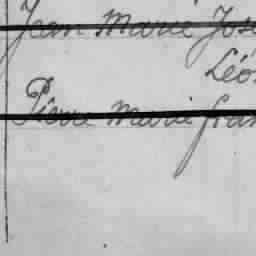 Jean Marie Jose
Léo
Pierre Marie fran